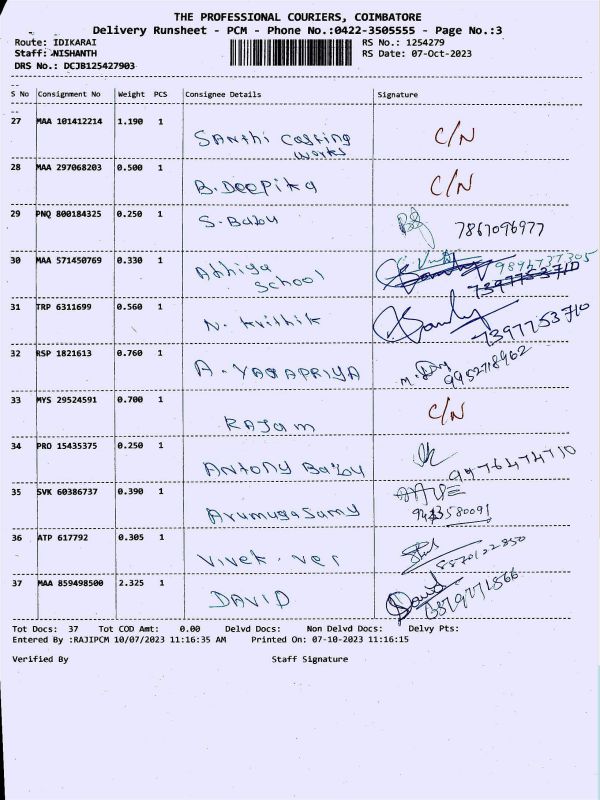 THE PROFESSIONAL COURIERS, COIMBATORE
Delivery Runsheet - PCM - Phone No.:0422-3505555 - Page No.:3
Route: IDIKARAI RS No.: 1254279
Staff: NISHANTH RS Date: 07-Oct-2023
DRS No.: DCJB125427903
S No Consignment No Weight PCS Consignee Details Signature
27 MAA 101412214 1.190 1 SANthi Casting works C/N
28 MAA 297068203 0.500 1 B.DEEPika C/N
29 PNQ 800184325 0.250 1 S.Babu 7867096977
30 MAA 571450769 0.330 1 School 9894737305
7397753710
31 TRP 6311699 0.560 1 N. krithik 7397753710
32 RSP 1821613 0.760 1 A. YAGAPRIYA 9952718962
33 MYS 29524591 0.700 1 RAJam C/N
34 PRO 15435375 0.250 1 Antony Babu 9976474710
35 SVK 60386737 0.390 1 Arumugasamy 9443580091
36 ATP 617792 0.305 1 Vivek. ver 8870122350
37 MAA 859498500 2.325 1 DAVID David
Tot Docs: 37 Tot COD Amt: 0.00 Delvd Docs: Non Delvd Docs: Delvy Pts:
Entered By :RAJIPCM 10/07/2023 11:16:35 AM Printed On: 07-10-2023 11:16:15
Verified By Staff Signature